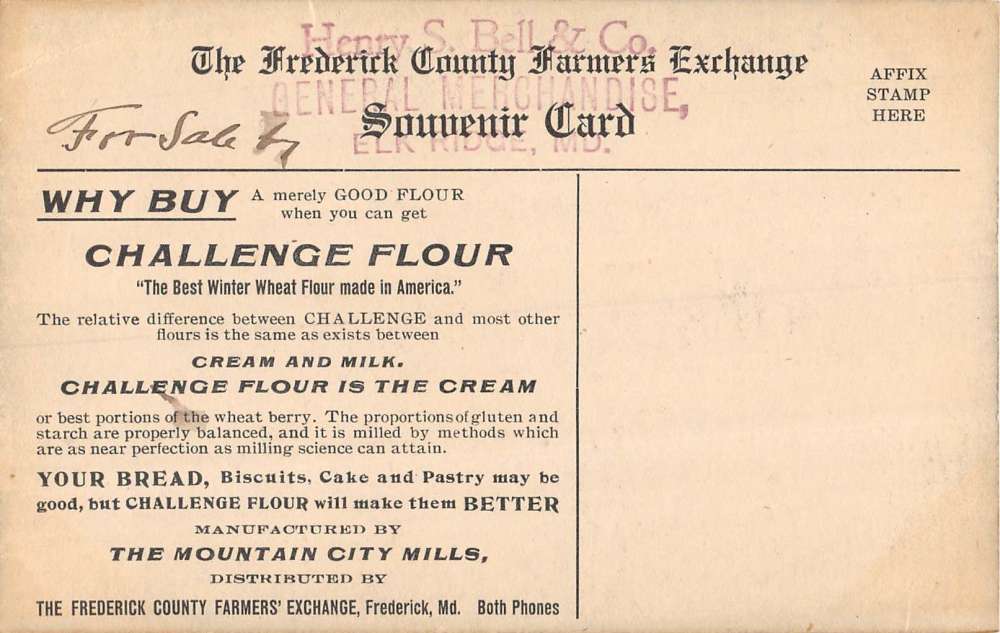 Henry S. Bell & Co.
The Frederick County Farmers Exchange
GENERAL MERCHANDISE,
Souvenir Card
ELK RIDGE, MD.
AFFIX
STAMP
HERE
For Sale by
WHY BUY A merely GOOD FLOUR
when you can get
CHALLENGE FLOUR
"The Best Winter Wheat Flour made in America."
The relative difference between CHALLENGE and most other
flours is the same as exists between
CREAM AND MILK.
CHALLENGE FLOUR IS THE CREAM
or best portions of the wheat berry. The proportions of gluten and
starch are properly balanced, and it is milled by methods which
are as near perfection as milling science can attain.
YOUR BREAD, Biscuits, Cake and Pastry may be
good, but CHALLENGE FLOUR will make them BETTER
MANUFACTURED BY
THE MOUNTAIN CITY MILLS,
DISTRIBUTED BY
THE FREDERICK COUNTY FARMERS' EXCHANGE, Frederick, Md. Both Phones